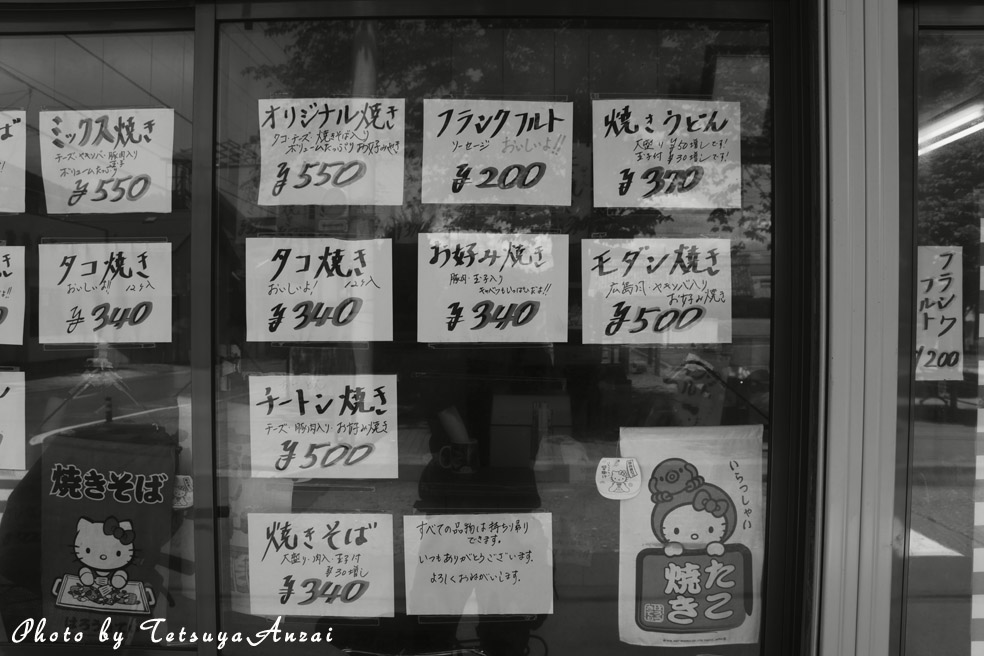 ば
ミックス焼き
チーズ・ヤキソバ・豚肉入り
玉子
ボリュームたっぷり
¥550
タコ焼き
おいしいよ! 12ヶ入
¥340
焼きそば
オリジナル焼き
タコ・チーズ・焼きそば入り
ボリュームたっぷり お好みやき
¥550
フランクフルト
ソーセージ おいしいよ!!
¥200
焼きうどん
大盛り ¥50増しです!
玉子付 ¥30増しです!
¥370
タコ焼き
おいしいよ! 12ヶ入
¥340
お好み焼き
豚肉・玉子入り
キャベツもいっぱいだよ!!
¥340
モダン焼き
広島風・ヤキソバ入り
お好み焼き
¥500
チートン焼き
チーズ・豚肉入り・お好み焼き
¥500
焼きそば
大盛り・肉入・玉子付
¥30増し
¥340
すべての品物は持ち帰り
できます。
いつもありがとうございます。
よろしくおねがいします。
いらっしゃい
たこ
焼き
フランク
フルト
¥200
Photo by TetsuyaAnzai